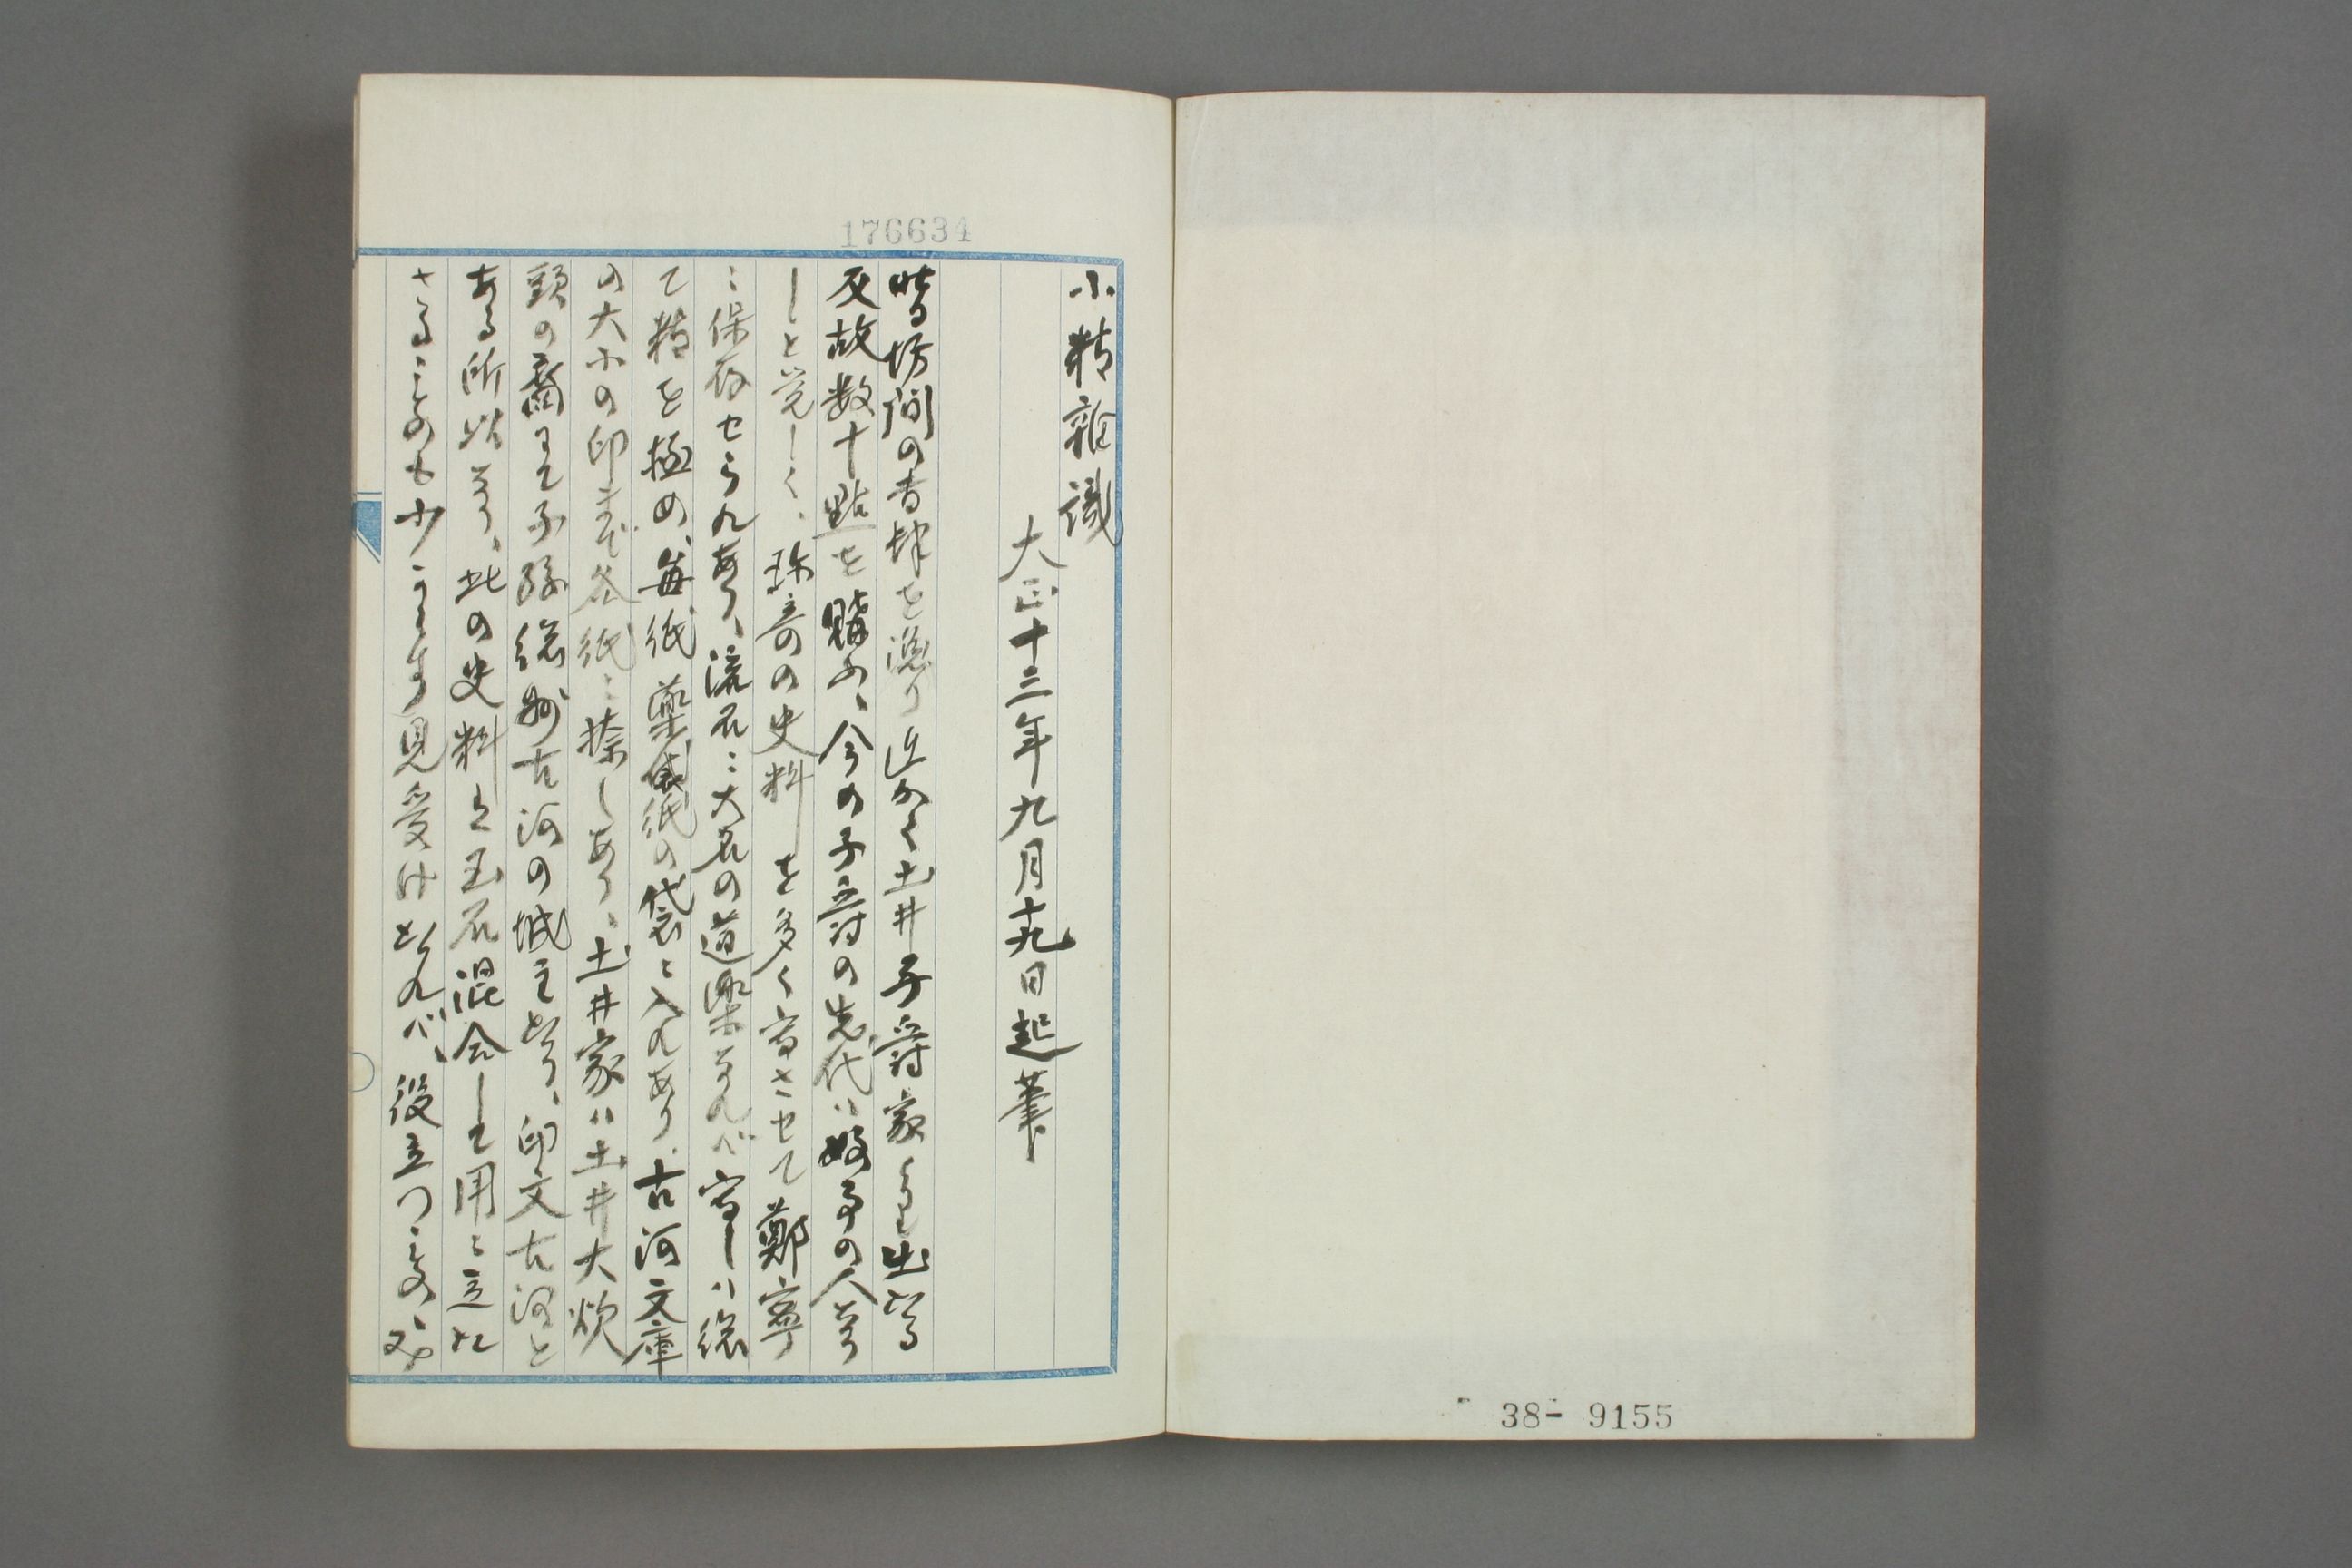 176634
小精雑識
大正十三年九月十九日起筆
嘗坊間の書肆を漁り近かく土井子爵家より出たる
反故数十點を購ふ、今の子爵の先代ハ好事の人なり
しと覚しく、珍奇の史料を多く寫させて鄭寧
ニ保存せられあり、流石ニ大名の道楽なれバ寫しハ総
て精を極め、毎紙薬袋紙の袋に入れあり、古河文庫
の大小の印まで各紙ニ捺しあり、土井家ハ土井大炊
頭の裔にて子孫総州古河の城主たり、印文古河と
ある所以なり、此の史料は玉石混合して用に立た
さることのも少からす見受けたれバ、役立つもの、
38- 9155